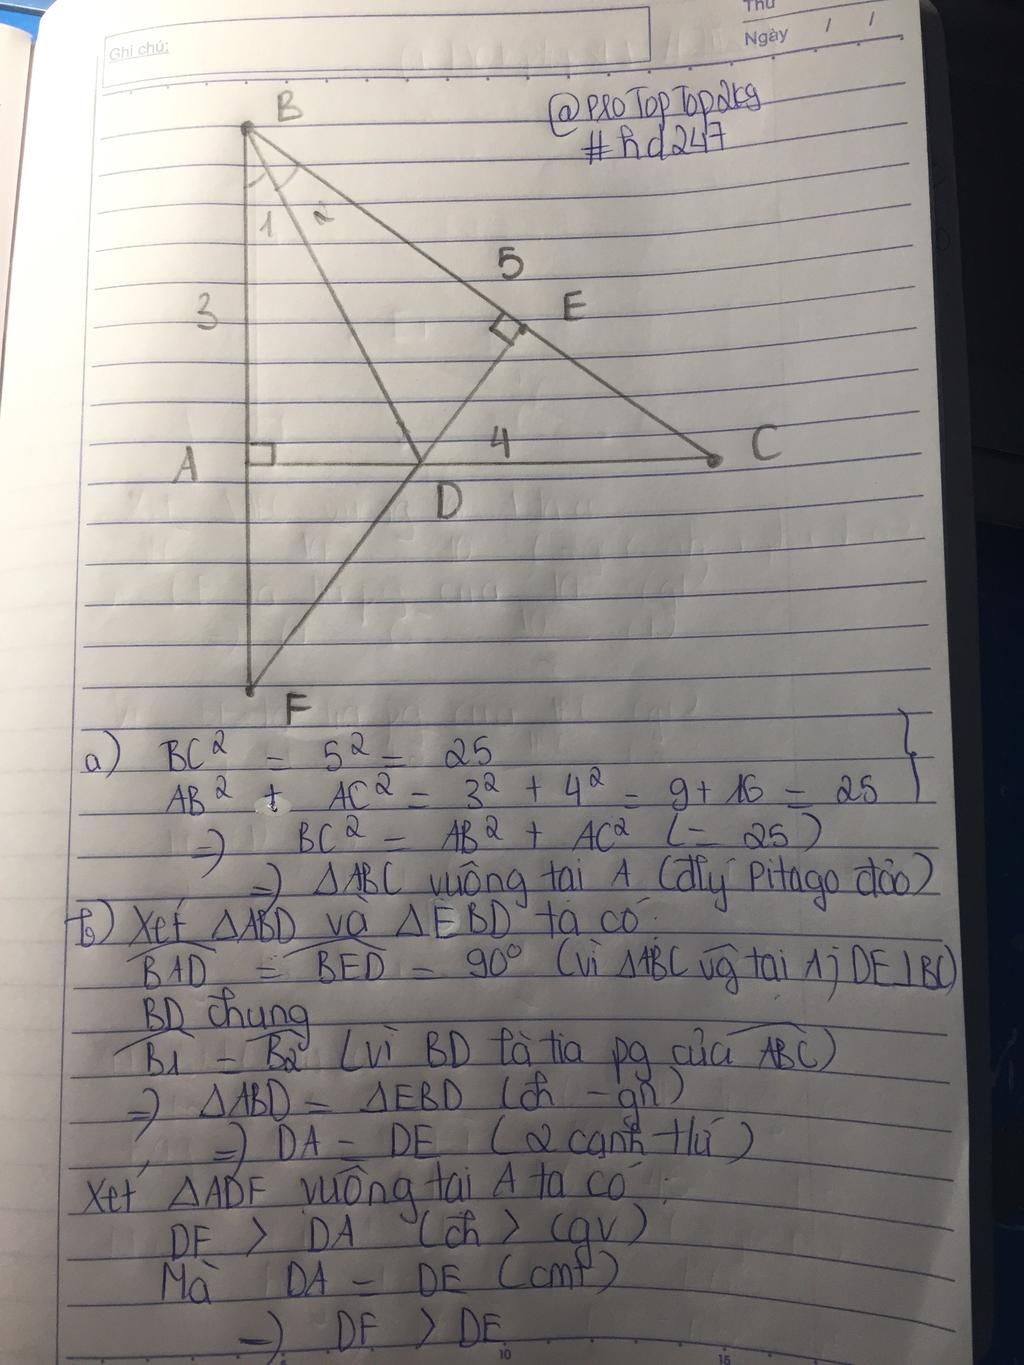 Ghi chú:
Thứ
Ngày / /
@pro Top Top2kg
#hd247
B
1 2
5
3
E
A
4
C
D
F
a) BC² = 5² = 25
AB² + AC² = 3² + 4² = 9 + 16 = 25
=) BC² = AB² + AC² (= 25)
=) ΔABC vuông tại A (đlý Pitago đảo)
b) Xét ΔABD và ΔEBD ta có:
BAD = BED = 90° (vì ΔABC vg tại A; DE⊥BC)
BD chung
B1 = B2 (vì BD là tia pg của ABC)
=) ΔABD = ΔEBD (ch - gn)
=) DA = DE (2 cạnh tứ)
Xét ΔADF vuông tại A ta có:
DF > DA (ch > cgv)
Mà DA = DE (cmt)
=) DF > DE
10
15